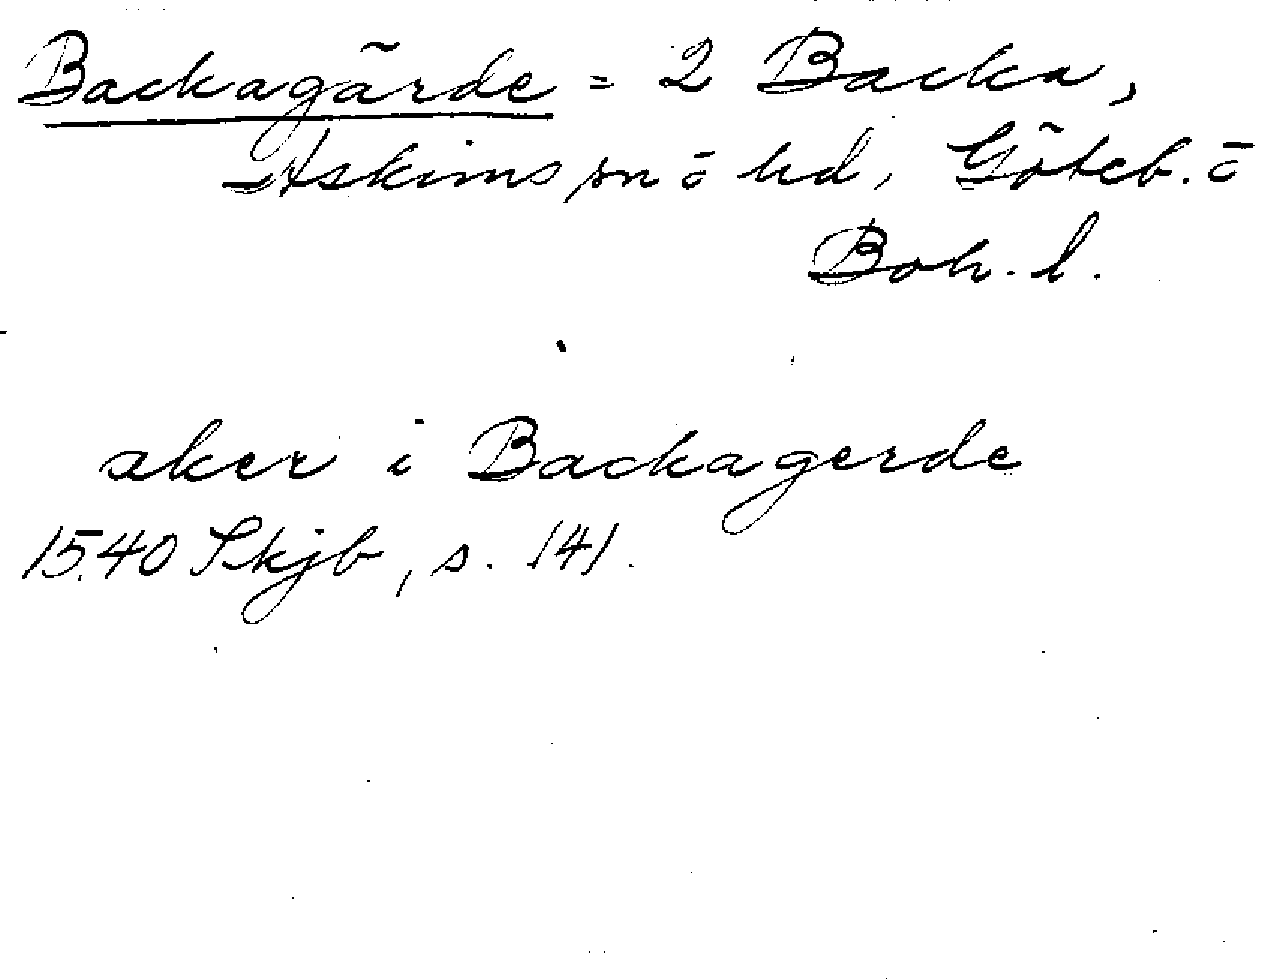 Backagärde = 2 Backa,
Askims sn ö hd, Göteb. ö
Boh. l.
aker i Backagerde
1540 Skjb, s. 141.